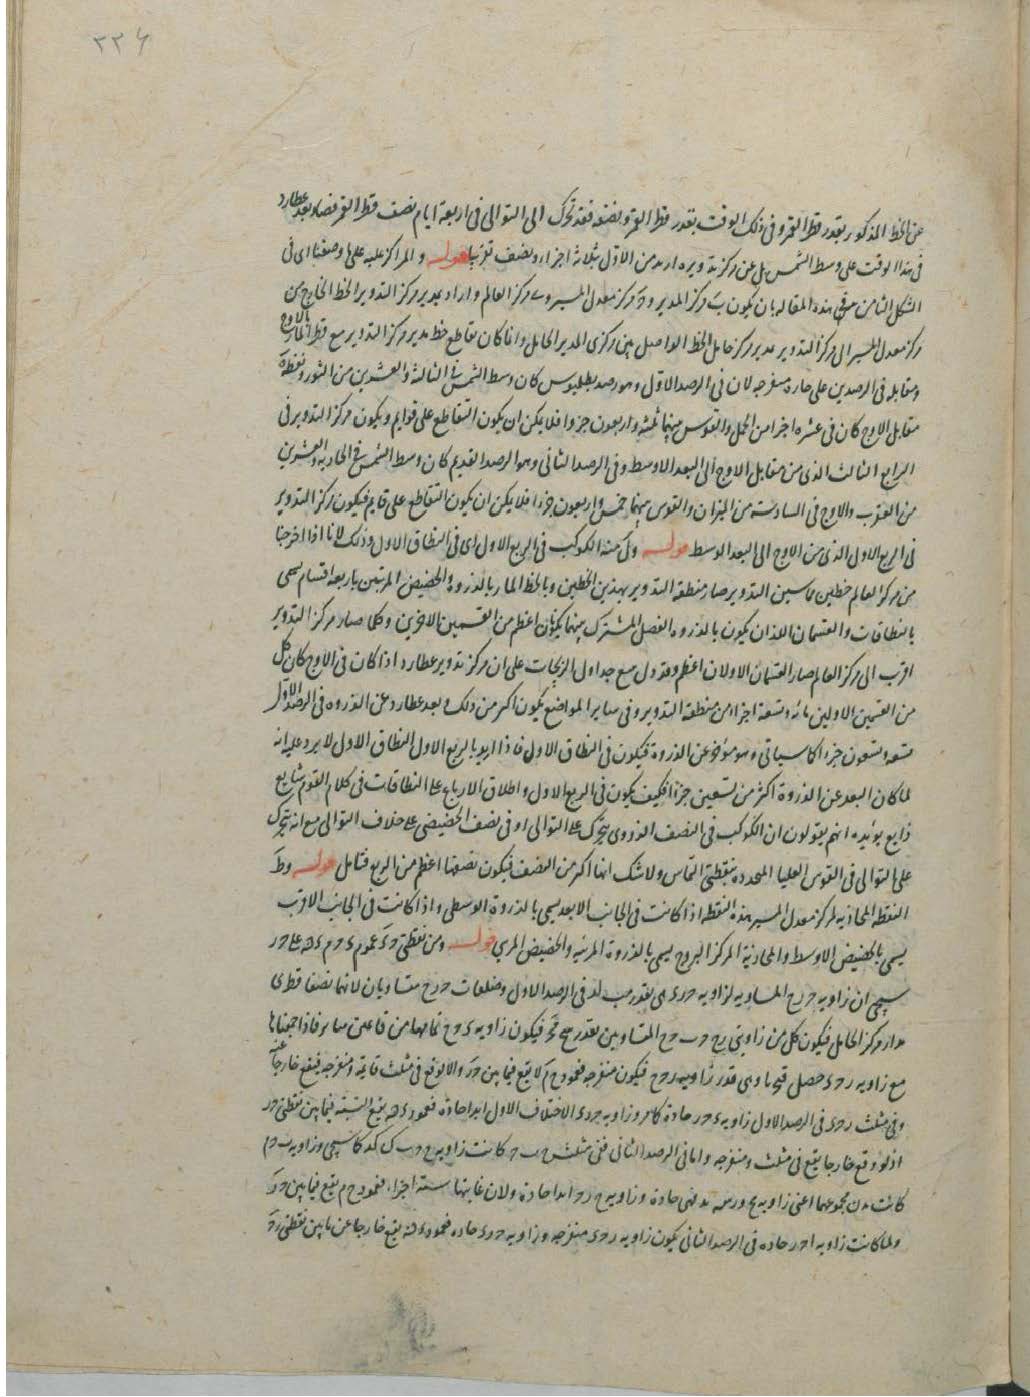 ٣٣٤
عن الخط المذكور بقدر قطر القمر وفى ذلك الوقت بقدر قطر القمر ونصفه فقد تحرك الى التوالى فى اربعة ايام نصف قطر القمر فصار بعد عطارد
فى هذا الوقت على وسط الشمس بل عن مركز تدويره من الاول ثلاثة اجزاء ونصف تقريبا قوله والمراكز عليه على ما وصفنا اى فى
الشكل الثامن من هذه المقالة بان يكون ب مركز المدير و مركز معدل المسير و مركز العالم واراد بمدير مركز التدوير الخط الخارج من
مركز معدل المسير الى مركز التدوير مدير مركز حامل الخط الواصل بين مركزى المدير والحامل وانما كان تقاطع خط مدير مركز التدوير مع قطر المار بالاوج
ومقابله فى الرصدين على حادة منفرجه لان فى الرصد الاول وهو رصد بطلميوس كان وسط الشمس فى الثالثة والعشرين من الثور ونقطة
مقابل الاوج كان فى عشرة اجزا من الحمل والقوس بينهما ثلثة واربعون جزوا فلا يمكن ان يكون التقاطع على قوايم ويكون مركز التدوير فى
الرابع الثالث الذى من مقابل الاوج الى البعد الاوسط وفى الرصد الثانى وهو الرصد القديم كان وسط الشمس فى الحادية والعشرين
من العقرب والاوج فى السادسة من الميزان والقوس بينهما خمس واربعون جزءا فلا يمكن ان يكون التقاطع على قايم فيكون مركز التدوير
فى الربع الاول الذى من الاوج الى البعد الاوسط قوله ولكن هذا الكوكب فى الربع الاول اى فى النطاق الاول وذلك لانا اذا اخرجنا
من مركز العالم خطين يماسين التدوير صار منطقة التدوير بهذين الخطين وبالخط المار بالذروة والحضيض المرئيين باربعة اقسام يسمى
بالنطاقات والقسمان اللذان يكون بالذروه الفصل المشترك بينهما يكونان اعظم من القسمين الاخرين وكلما صار مركز التدوير
اقرب الى مركز العالم صار القسمان الاولان اعظم وقد دل مع جداول الزيجات على ان مركز تدوير عطارد اذا كان فى الاوج كان كل
من القسمين الاولين مائه وتسعة اجزا من منطقة التدوير وفى ساير المواضع يكون اكثر من ذلك وبعد عطارد عن الذروه فى الرصد الاول
تسعه وتسعون جزءا كما سياتى وهو مؤخر عن الذروة فيكون فى النطاق الاول فاذا اريد بالربع الاول النطاق الاول لا يرد عليه انه
لما كان البعد عن الذروة اكثر من تسعين جزءا فكيف يكون فى الربع الاول واطلاق الارباع على النطاقات فى كلام القوم شايع
ذايع يؤيده انهم يقولون ان الكوكب فى النصف الذروى يتحرك على التوالى وفى نصف الحضيضى على خلاف التوالى مع انه يتحرك
على التوالى فى القوس العليا المحدده بنقطتى التماس ولا شك انها اكثر من النصف فيكون نصفها اعظم من الربع فتامل قوله وط
النقطة المحاذيه لمركز معدل المسير هذه النقطه اذا كانت فى الجانب الابعد يسمى بالذروة الوسطى واذا كانت فى الجانب الاقرب
يسمى بالحضيض الاوسط والمحاذية لمركز البروج يسمى بالذروة المرئيه والحضيض المرئى قوله ومن نقطتى ح عمود
سيجى ان زاويه المساويه لزاويه هى بقدر فى الرصد الاول وضلعات متساويان لانهما نصفا قطرى
مدار مركز الحامل فيكون كل من زاويتى المتساويين بقدر فيكون زاويه تمامها من قائمتين فاذا جمعناها
مع زاويه حصل وهى قدر زاويه فيكون منفرجه فعمود لا يقع فيما بين والا لوقع فى مثلث قايمه ومنفرجه فيقع خارجا عنه
وفى مثلث فى الرصد الاول زاويه حادة كما مر وزاويه الاختلاف الاول ابدا حادة فعمود يقع البتة فيما بين نقطتى
اذ لو وقع خارجا يقع فى مثلث ومنفرجه واما فى الرصد الثانى ففى مثلث كانت زاويه كما سيجى وزاويه
كانت مجموعهما اعنى زاويه فهى حادة وزاويه ابدا حادة ولان غايتها ستة اجزاء فعمود يقع فيما بين
ولما كانت زاويه حاده فى الرصد الثانى يكون زاويه منفرجه وزاويه حاده فعمود يقع خارجا عن ما بين نقطتى